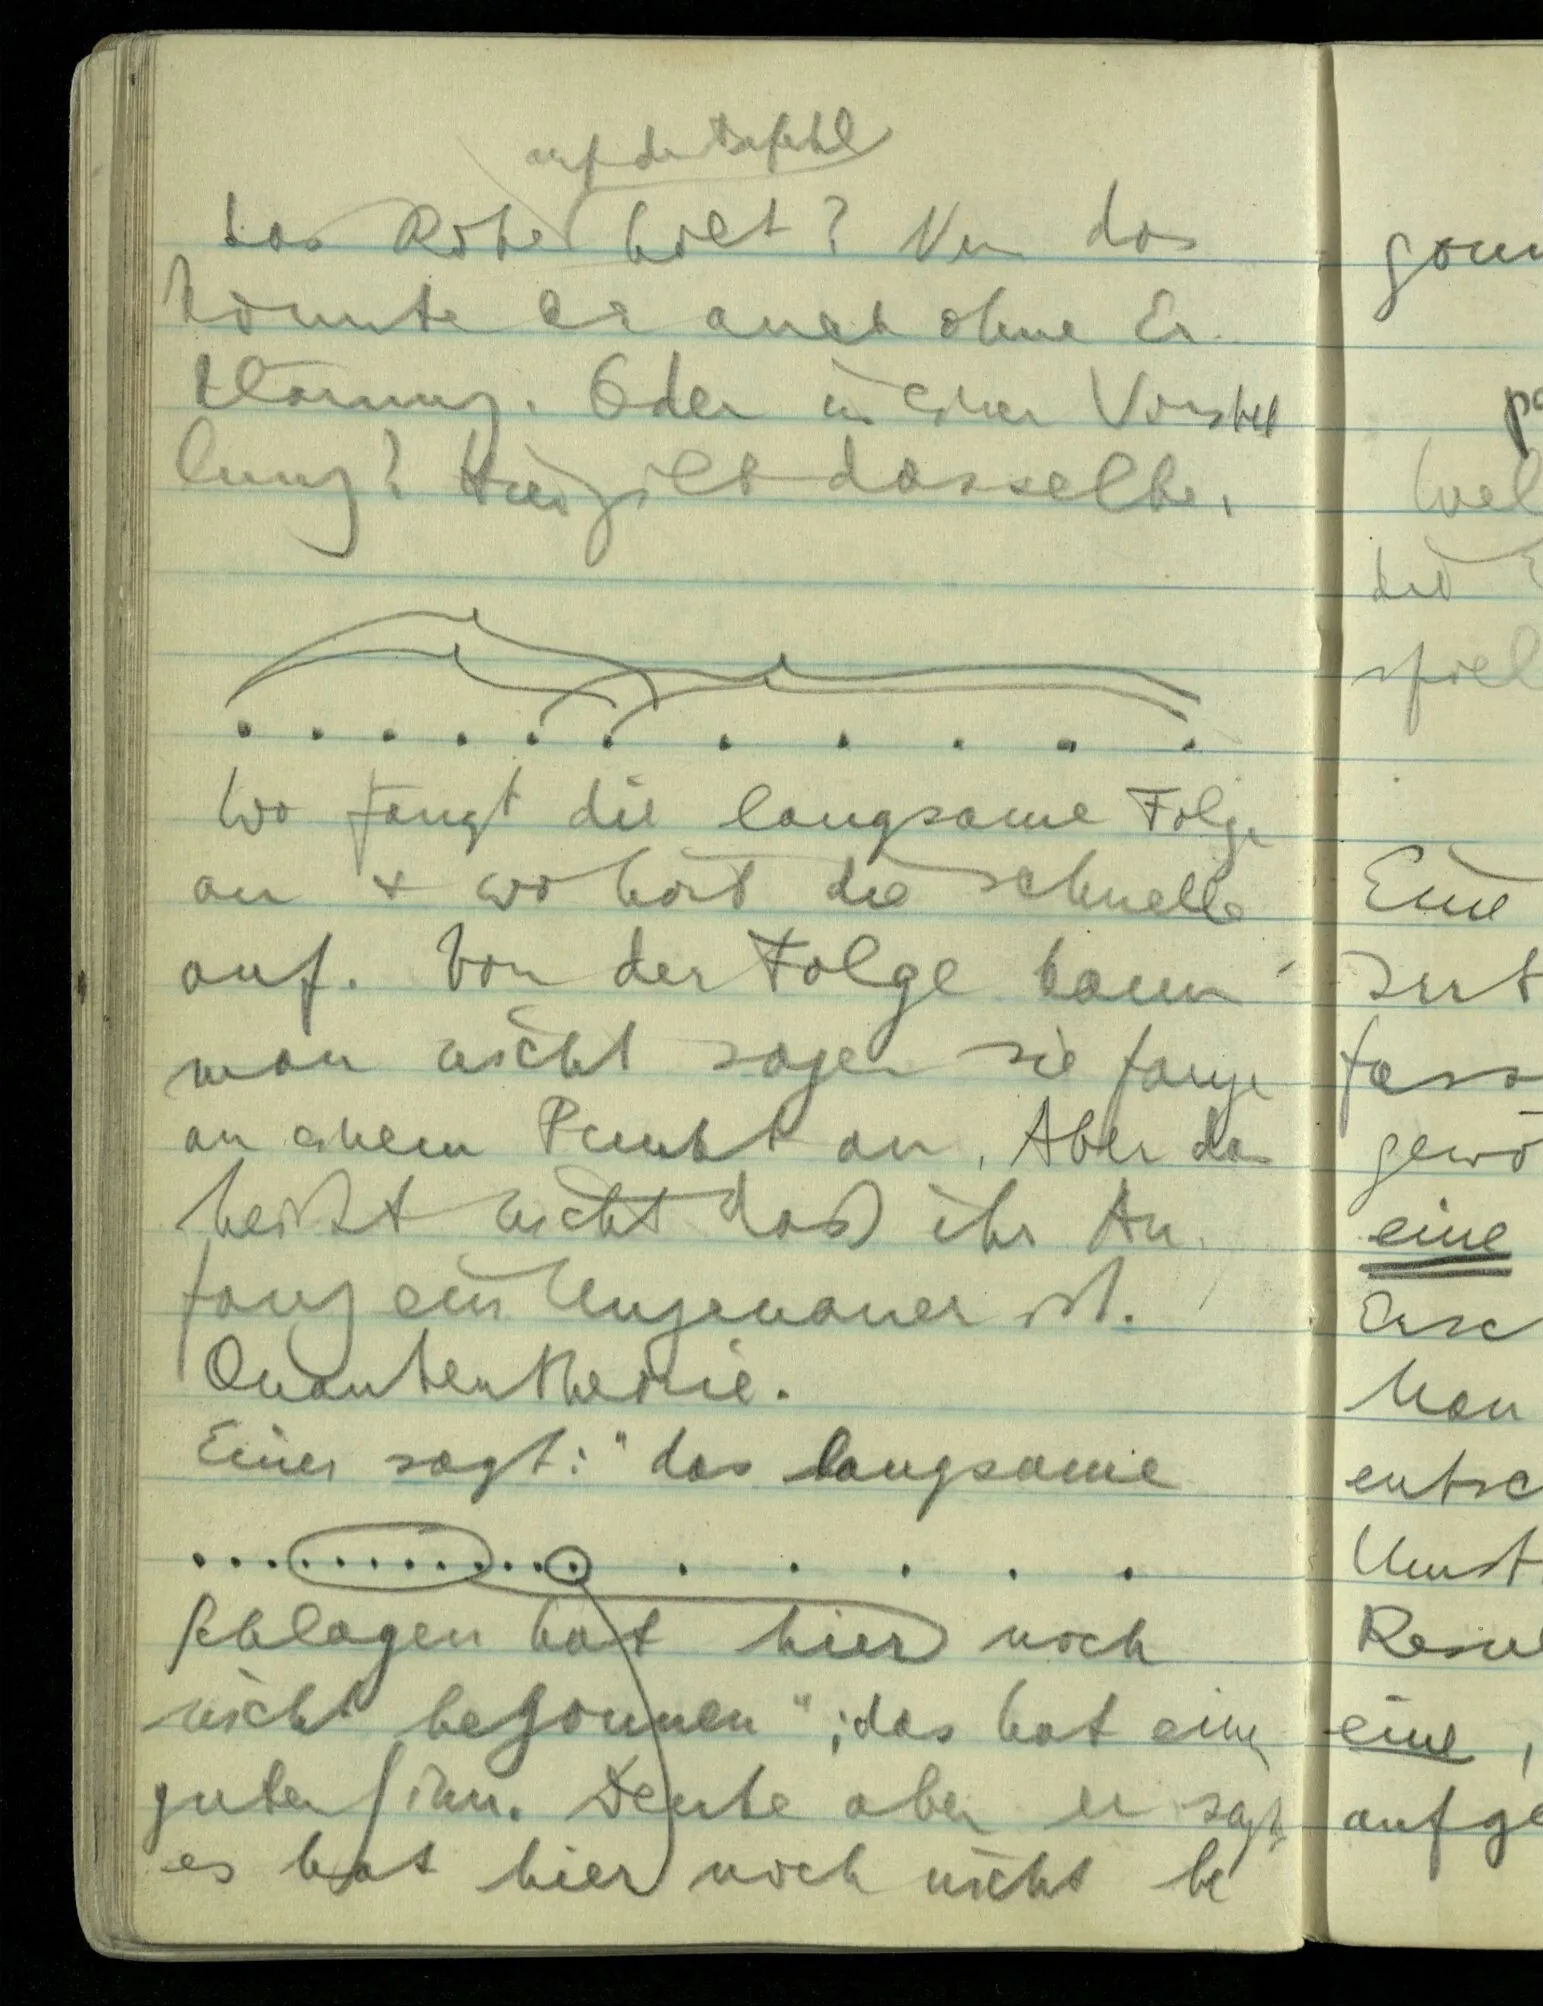 auf den Befehl
das Rote holt? Nun das
könnte er auch ohne Er-
klärung. Oder in einer Vorstel
lung? Hier gilt dasselbe.
Wo fängt die langsame Folge
an + wo hört die schnelle
auf. Von der Folge kann
man nicht sagen sie fange
an einem Punkt an. Aber das
heißt nicht daß ihr An-
fang ein Ungenauer ist.
Quantentheorie.
Einer sagt: "das langsame
Schlagen hat hier noch
nicht begonnen"; das hat einen
guten Sinn. Denke aber er sagt
es hat hier noch nicht be
gonn
Wel
die
spiel
Eine
fass
gewö
eine
Ersc
Man
entsc
Umst
Resul
eine,
aufge